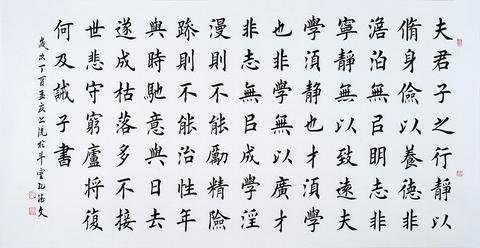 夫君子之行靜以
脩身儉以養德非
澹泊無㠯明志非
寧靜無以致遠夫
學湏靜也才湏學
也非學無以廣才
非志無㠯成學淫
漫則不能勵精險
躁則不能治性年
與時馳意與日去
遂成枯落多不接
世悲守窮廬将復
何及誡子書
歲次丁酉孟夏上浣於斗室